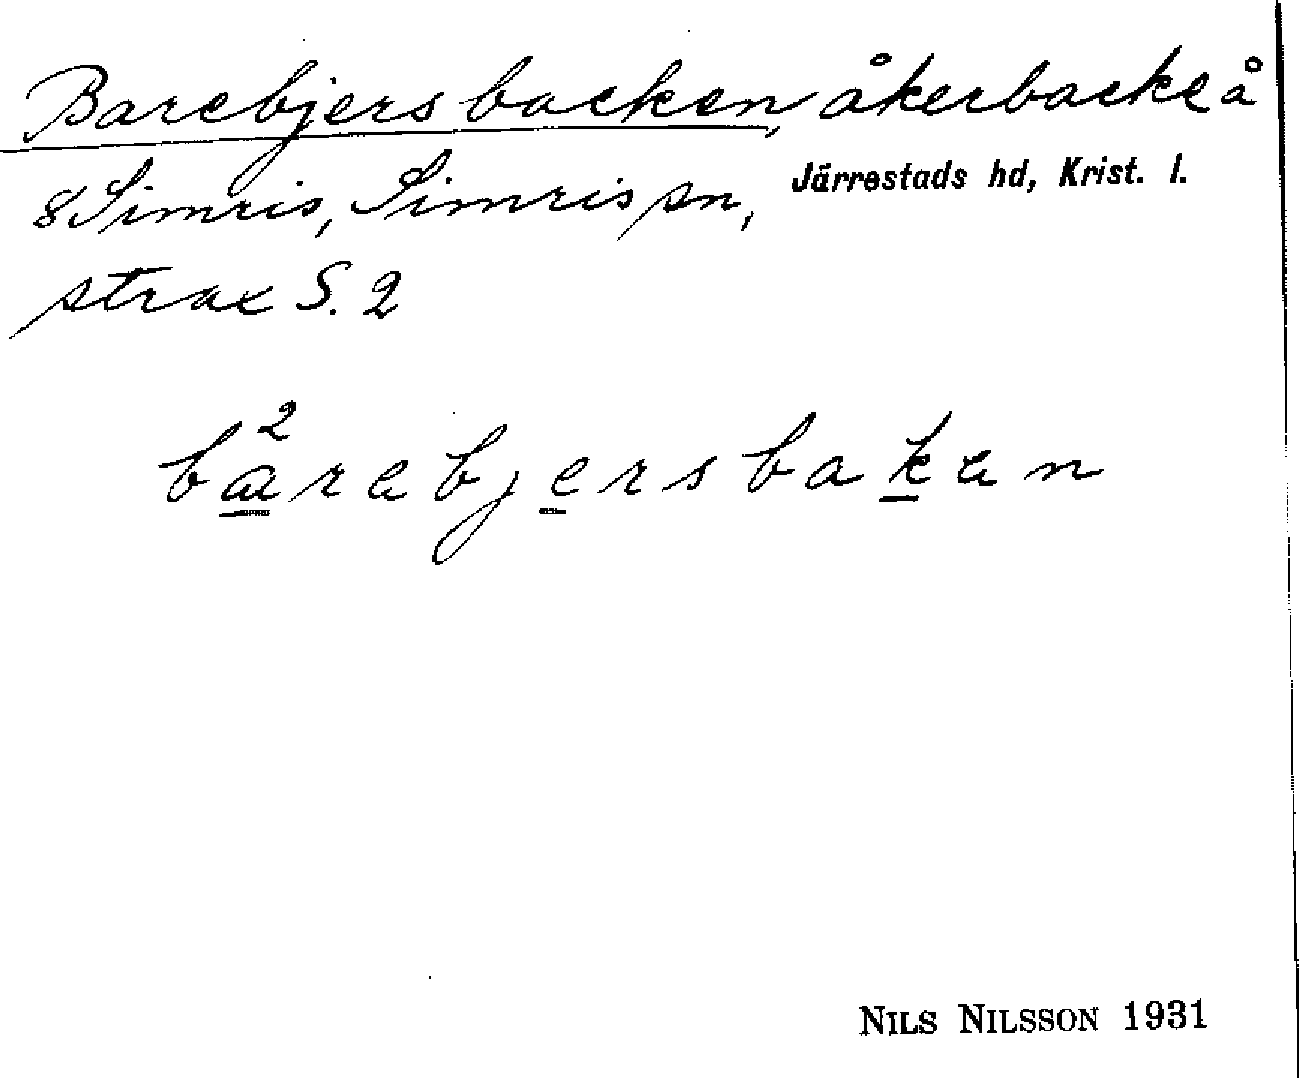 Barebjersbacken, åkerbacke å
8 Simris, Simris sn, Järrestads hd, Krist. l.
strax S. 2
2
barebjersbakan
NILS NILSSON 1931